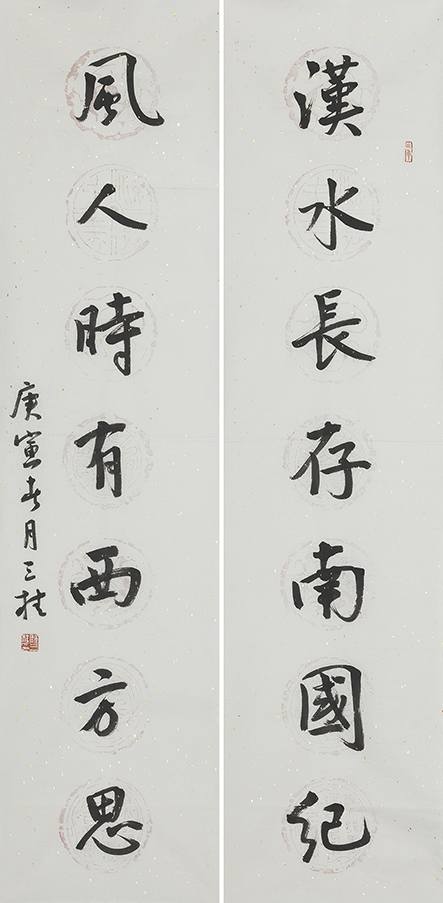 漢水長存南國紀
風人時有西方思
庚寅春月三桂